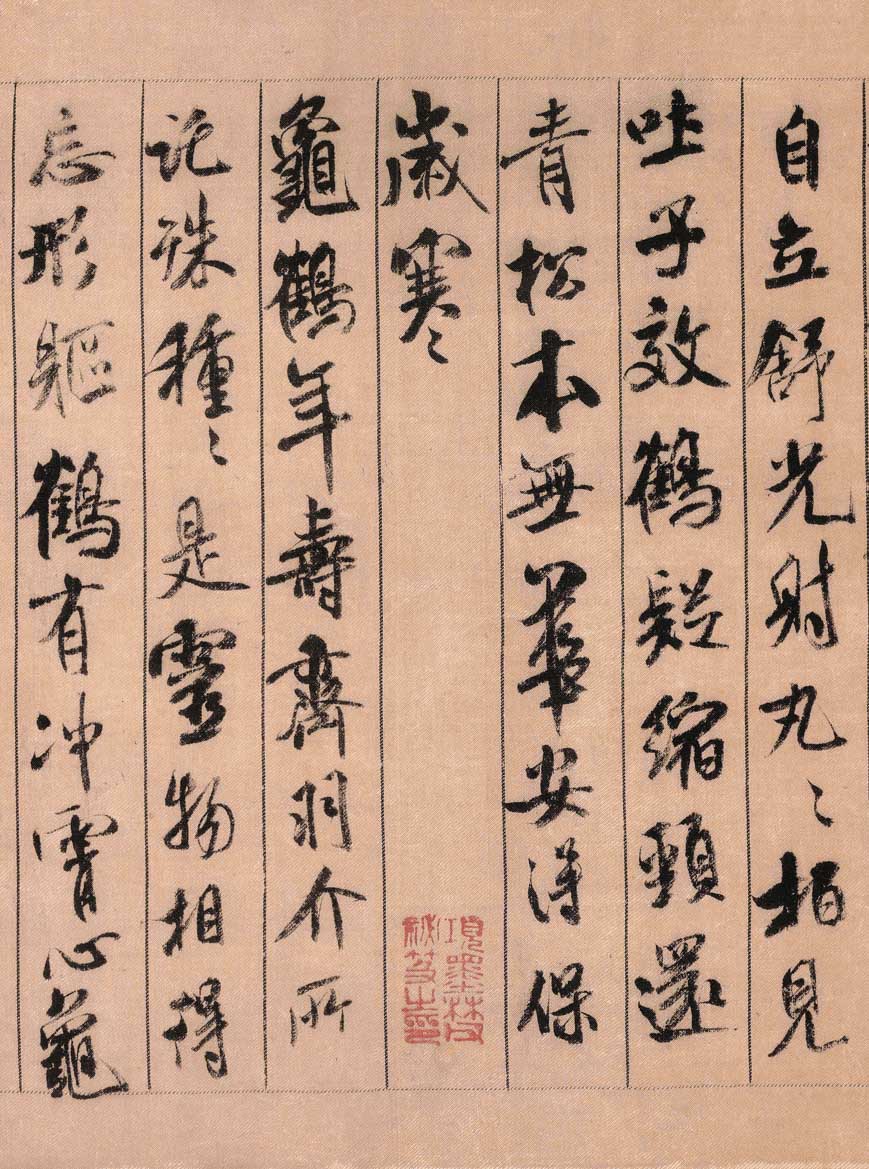 自立舒光射丸〻柏見
吐子效鶴疑縮頸還
青松本無華安得保
歲寒
龜鶴年壽齊羽介所
託殊種〻是靈物相得
忘形軀鶴有冲霄心龜
項墨林父
秘笈之印